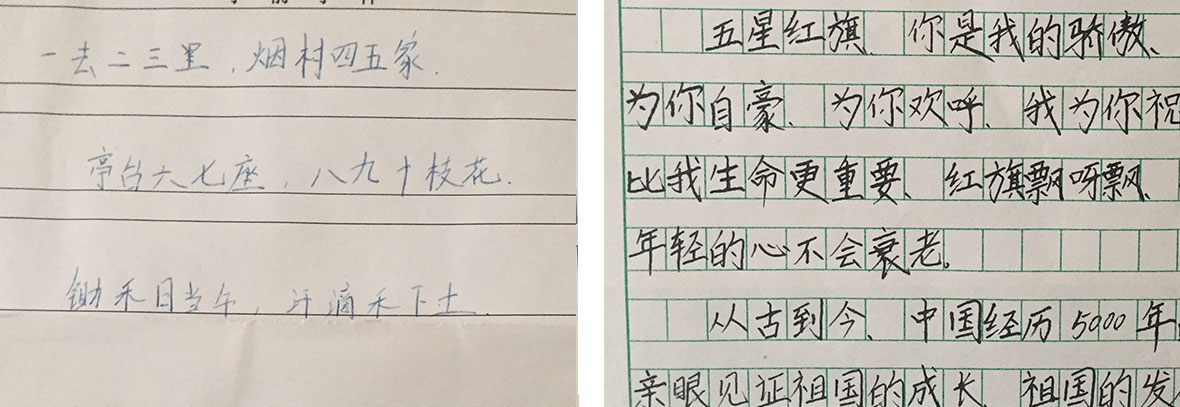 一去二三里，烟村四五家.
亭台六七座，八九十枝花.
锄禾日当午，汗滴禾下土.
五星红旗、你是我的骄傲、
为你自豪、为你欢呼、我为你祝
比我生命更重要、红旗飘呀飘、
年轻的心不会衰老。
从古到今、中国经历5000年
亲眼见证祖国的成长、祖国的发